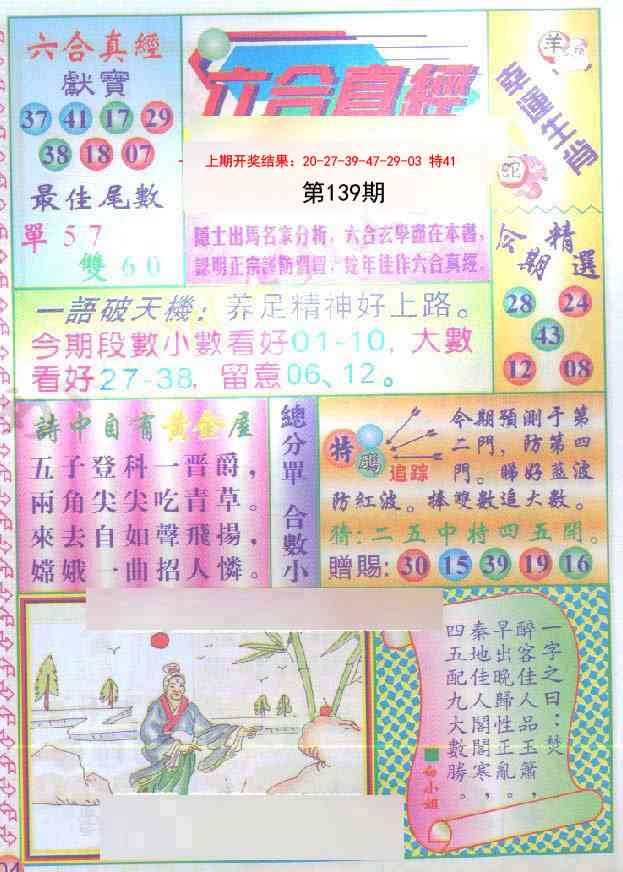 六合真經
獻寶
37 41 17 29
38 18 07
最佳尾數
單57
雙60
六合真經
上期开奖结果：20-27-39-47-29-03 特41
第139期
隱士出馬名家分析，六合玄學盡在本書，
蛇年佳作六合真經
羊
幸運生肖
蛇
今期
精選
28 24
43
12 08
一語破天機：养足精神好上路。
今期段數小數看好01-10，大數
看好27-38，留意06、12。
詩中自有黃金屋
五子登科一晋爵，
兩角尖尖吃青草。
來去自如聲飛揚，
嫦娥一曲招人憐。
總分單 合數小
特 碼
追踪
今期預測于第
二門，防第四
門。睇好藍波
防紅波。捧雙數追大數。
猜：二五中特四五開。
贈賜：30 15 39 19 16
一字之曰：焚
醉客佳人品玉簫，
早出晚歸性正亂。
秦地佳人閣閣寒，
四五配九大數勝。
白小姐
04